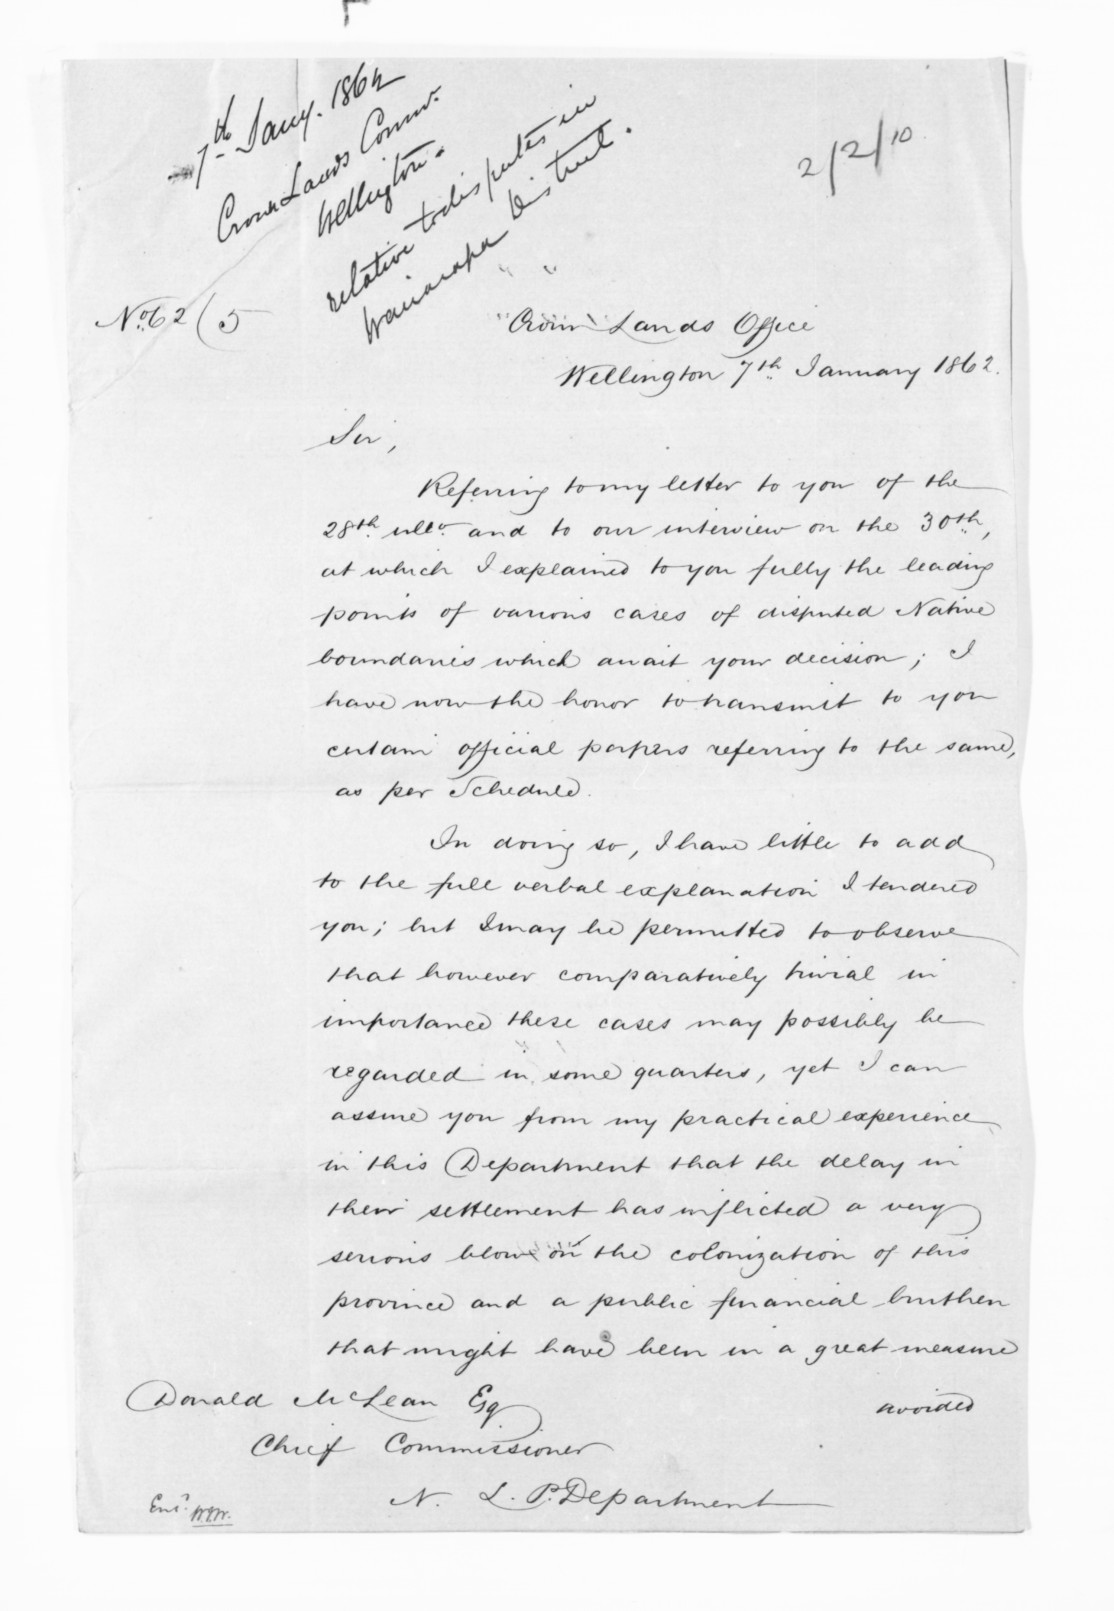 7th Jany. 1862
Crown Lands Commr.
Wellington.
relative to disputes in
Wairarapa District.
2/2/10
No. 62/5
Crown Lands Office
Wellington 7th January 1862.
Sir,
Referring to my letter to you of the
28th ulto. and to our interview on the 30th,
at which I explained to you fully the leading
points of various cases of disputed Native
boundaries which await your decision; I
have now the honor to transmit to you
certain official papers referring to the same,
as per Schedule.
In doing so, I have little to add
to the full verbal explanation I tendered
you; but I may be permitted to observe
that however comparatively trivial in
importance these cases may possibly be
regarded in some quarters, yet I can
assure you from my practical experience
in this Department that the delay in
their settlement has inflicted a very
serious blow on the colonization of this
province and a public financial burthen
that might have been in a great measure
avoided
Donald McLean Esq
Chief Commissioner
N. L. P. Department